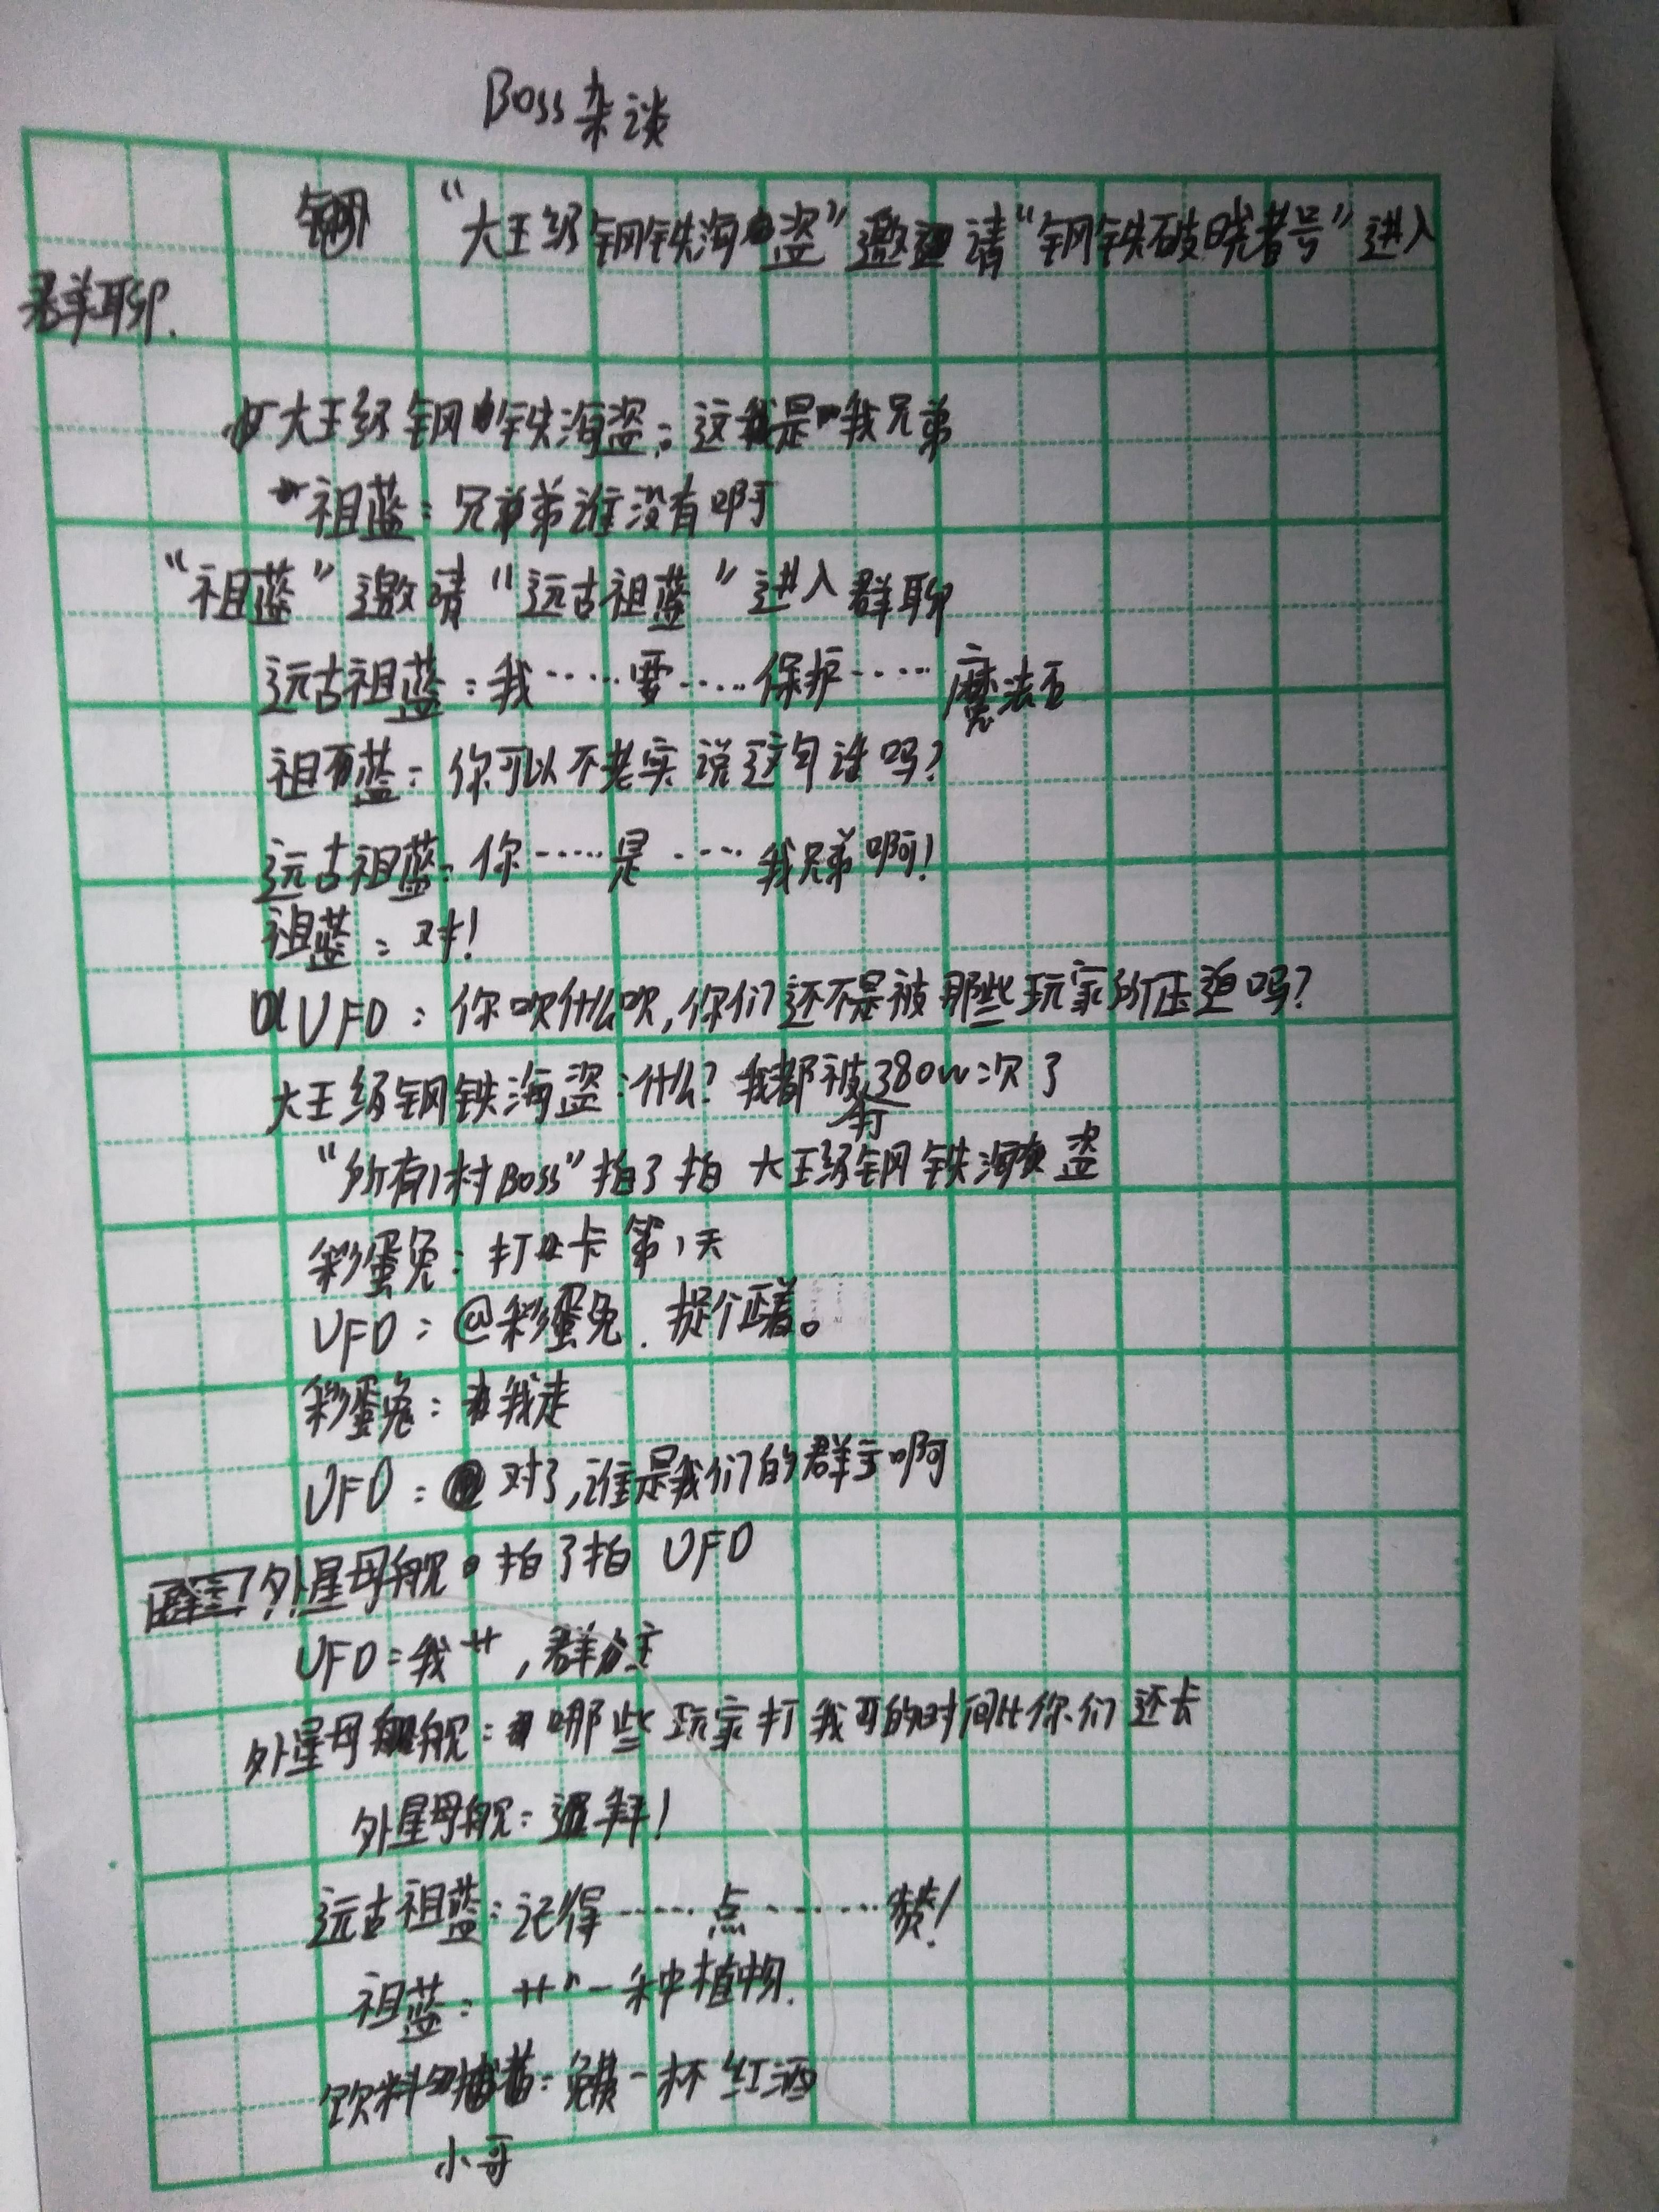 Boss杂谈
“大王级钢铁海盗”邀请“钢铁破晓者号”进入
群聊.
大王级钢铁海盗：这是我兄弟
祖蓝：兄弟谁没有啊
“祖蓝”邀请“远古祖蓝”进入群聊
远古祖蓝：我……要……保护……魔法
祖蓝：你可以不老实说这句话吗？
远古祖蓝：你……是……我兄弟啊！
祖蓝：对！
UFO：你吹什么吹，你们还不是被那些玩家所压迫吗？
大王级钢铁海盗：什么？我都被打380w次了
“所有村Boss”拍了拍 大王级钢铁海盗
彩蛋兔：打卡第1天
UFO：@彩蛋兔. 捉个正着。
彩蛋兔：我走
UFO：对了，谁是我们的群主啊
群主 外星母舰 拍了拍 UFO
UFO：我艹，群主
外星母舰：那些玩家打我的时间比你们还长
外星母舰：退群！
远古祖蓝：记得……点……赞！
祖蓝：艹 一种植物.
饮料：一杯红酒
小哥